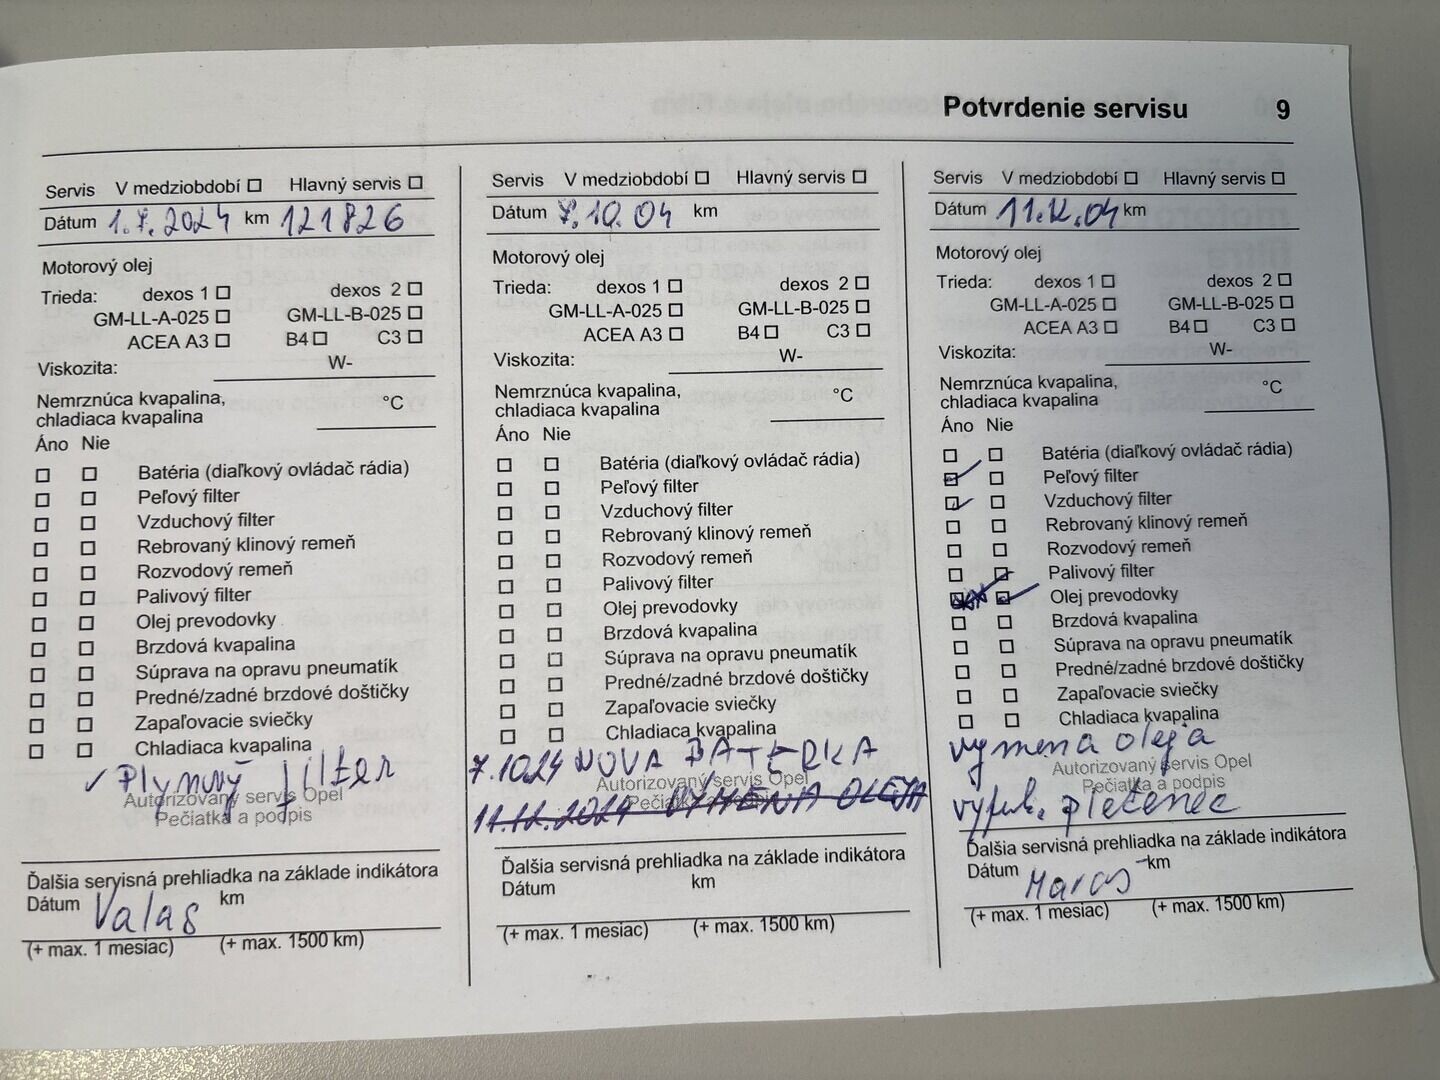 Potvrdenie servisu 9
Servis V medziobdobí Hlavný servis
Dátum 1.7.2024 km 121826
Motorový olej
Trieda: dexos 1 dexos 2
GM-LL-A-025 GM-LL-B-025
ACEA A3 B4 C3
Viskozita: W-
Nemrznúca kvapalina,
chladiaca kvapalina °C
Áno Nie
Batéria (diaľkový ovládač rádia)
Peľový filter
Vzduchový filter
Rebrovaný klinový remeň
Rozvodový remeň
Palivový filter
Olej prevodovky
Brzdová kvapalina
Súprava na opravu pneumatík
Predné/zadné brzdové doštičky
Zapaľovacie sviečky
Chladiaca kvapalina
✓ Plynový filter
Autorizovaný servis Opel
Pečiatka a podpis
Ďalšia servisná prehliadka na základe indikátora
Dátum Valas km
(+ max. 1 mesiac) (+ max. 1500 km)
Servis V medziobdobí Hlavný servis
Dátum 7.10.04 km
Motorový olej
Trieda: dexos 1 dexos 2
GM-LL-A-025 GM-LL-B-025
ACEA A3 B4 C3
Viskozita: W-
Nemrznúca kvapalina,
chladiaca kvapalina °C
Áno Nie
Batéria (diaľkový ovládač rádia)
Peľový filter
Vzduchový filter
Rebrovaný klinový remeň
Rozvodový remeň
Palivový filter
Olej prevodovky
Brzdová kvapalina
Súprava na opravu pneumatík
Predné/zadné brzdové doštičky
Zapaľovacie sviečky
Chladiaca kvapalina
7.1024 NOVA BATERKA
Autorizovaný servis Opel
Pečiatka a podpis
11.12.2024 VÝMENA OLEJA
Ďalšia servisná prehliadka na základe indikátora
Dátum km
(+ max. 1 mesiac) (+ max. 1500 km)
Servis V medziobdobí Hlavný servis
Dátum 11.12.04 km
Motorový olej
Trieda: dexos 1 dexos 2
GM-LL-A-025 GM-LL-B-025
ACEA A3 B4 C3
Viskozita: W-
Nemrznúca kvapalina,
chladiaca kvapalina °C
Áno Nie
Batéria (diaľkový ovládač rádia)
Peľový filter
Vzduchový filter
Rebrovaný klinový remeň
Rozvodový remeň
Palivový filter
Olej prevodovky
Brzdová kvapalina
Súprava na opravu pneumatík
Predné/zadné brzdové doštičky
Zapaľovacie sviečky
Chladiaca kvapalina
vymena oleja
Autorizovaný servis Opel
Pečiatka a podpis
výfuk. pletenec
Ďalšia servisná prehliadka na základe indikátora
Dátum Maros km
(+ max. 1 mesiac) (+ max. 1500 km)